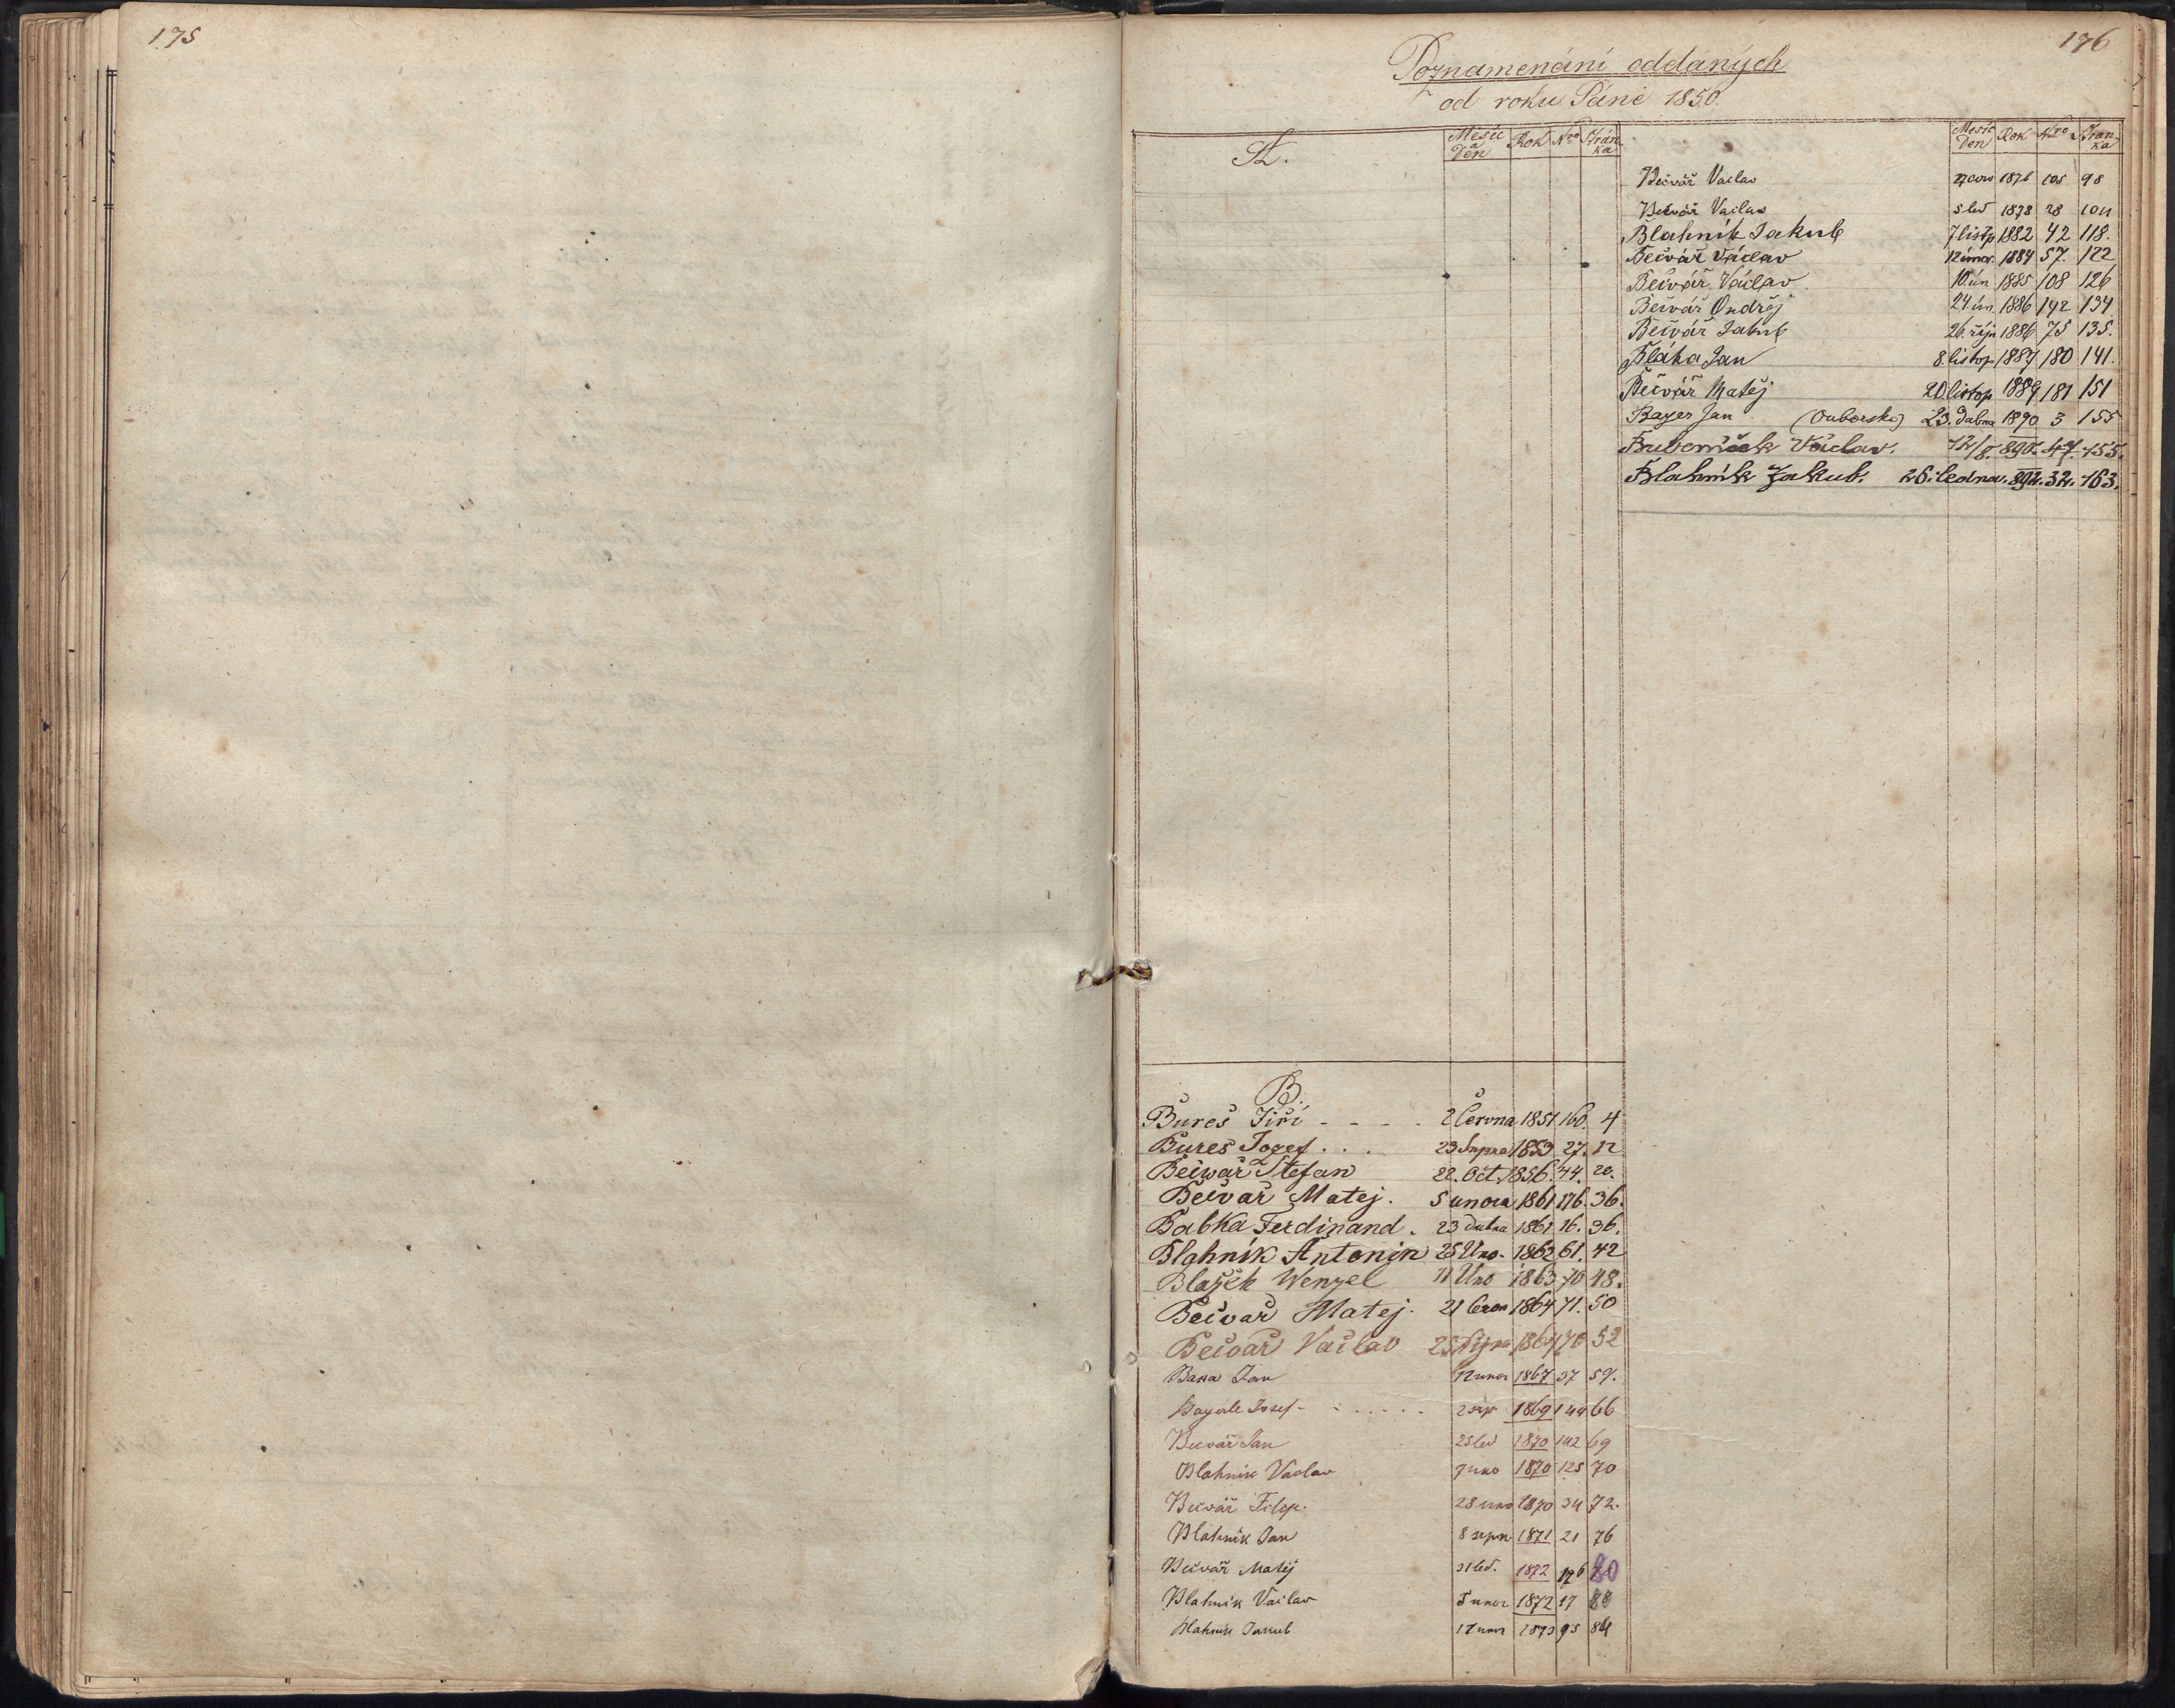 175
176
Poznamenání oddaných
od roku Páně 1850.
A.
Měsíc a Den Rok Nro Strán ka
B.
Bureš Jiří 2 Června 1851 160. 4
Bures Josef 23 Srpna 1853 27. 12
Bečwař Štefan 22. Oct. 1856. 44. 20.
Bečvař Matej. 5 unora 1861 176. 36.
Babka Ferdinand. 23 Dubna 1861 16. 36.
Blahnik Antonin 25 Uno. 1862 61. 42
Blažek Wenzel 11 Uno 1863 70 48.
Bečvař Matej. 21 1864 71. 50
Bečvař Vačlav 25 Října 1864 70 52
Jan 12 unor 1867 37 59.
Josef 2 srp 1869 144 66
Bečvář Jan 25 led 1870 142 69
Blahnik Vaclav 7 uno 1870 125 70
Bečvář Filip. 28 uno 1870 34 72.
Blahnik Jan 8 srpn 1871 21 76
Bečvář Matěj 31 led. 1872 176 80
Blahnik Vaclav 5 unor 1872 17
Blahnik Jakub 17 unor 1873 95 84
Měsíc Den Rok Nro Strán ka
Bečvář Vaclav 1876 105 98
Bečvář Vaclav 5 led 1878 28 104
Blahnik Jakub 7 listp 1882 42 118.
Bečvář Václav 12 únor. 1884 57. 122
Bečvář Václav 10 ún 1885 108 126
Bečvář Ondřej 24 ún. 1886 142 134
Bečvář Jakub 26 říjn 1886 75 135.
Bláha Jan 8. listop 1887 180 141.
Bečvář Matěj 20 listop 1889 181 151
Bayer Jan (Ouborsko) 23. Dubna 1890 3 155
Bubeníček Václav. 12/8. 890. 47. 155.
Blahník Jakub. 26. ledna. 892. 32. 163.